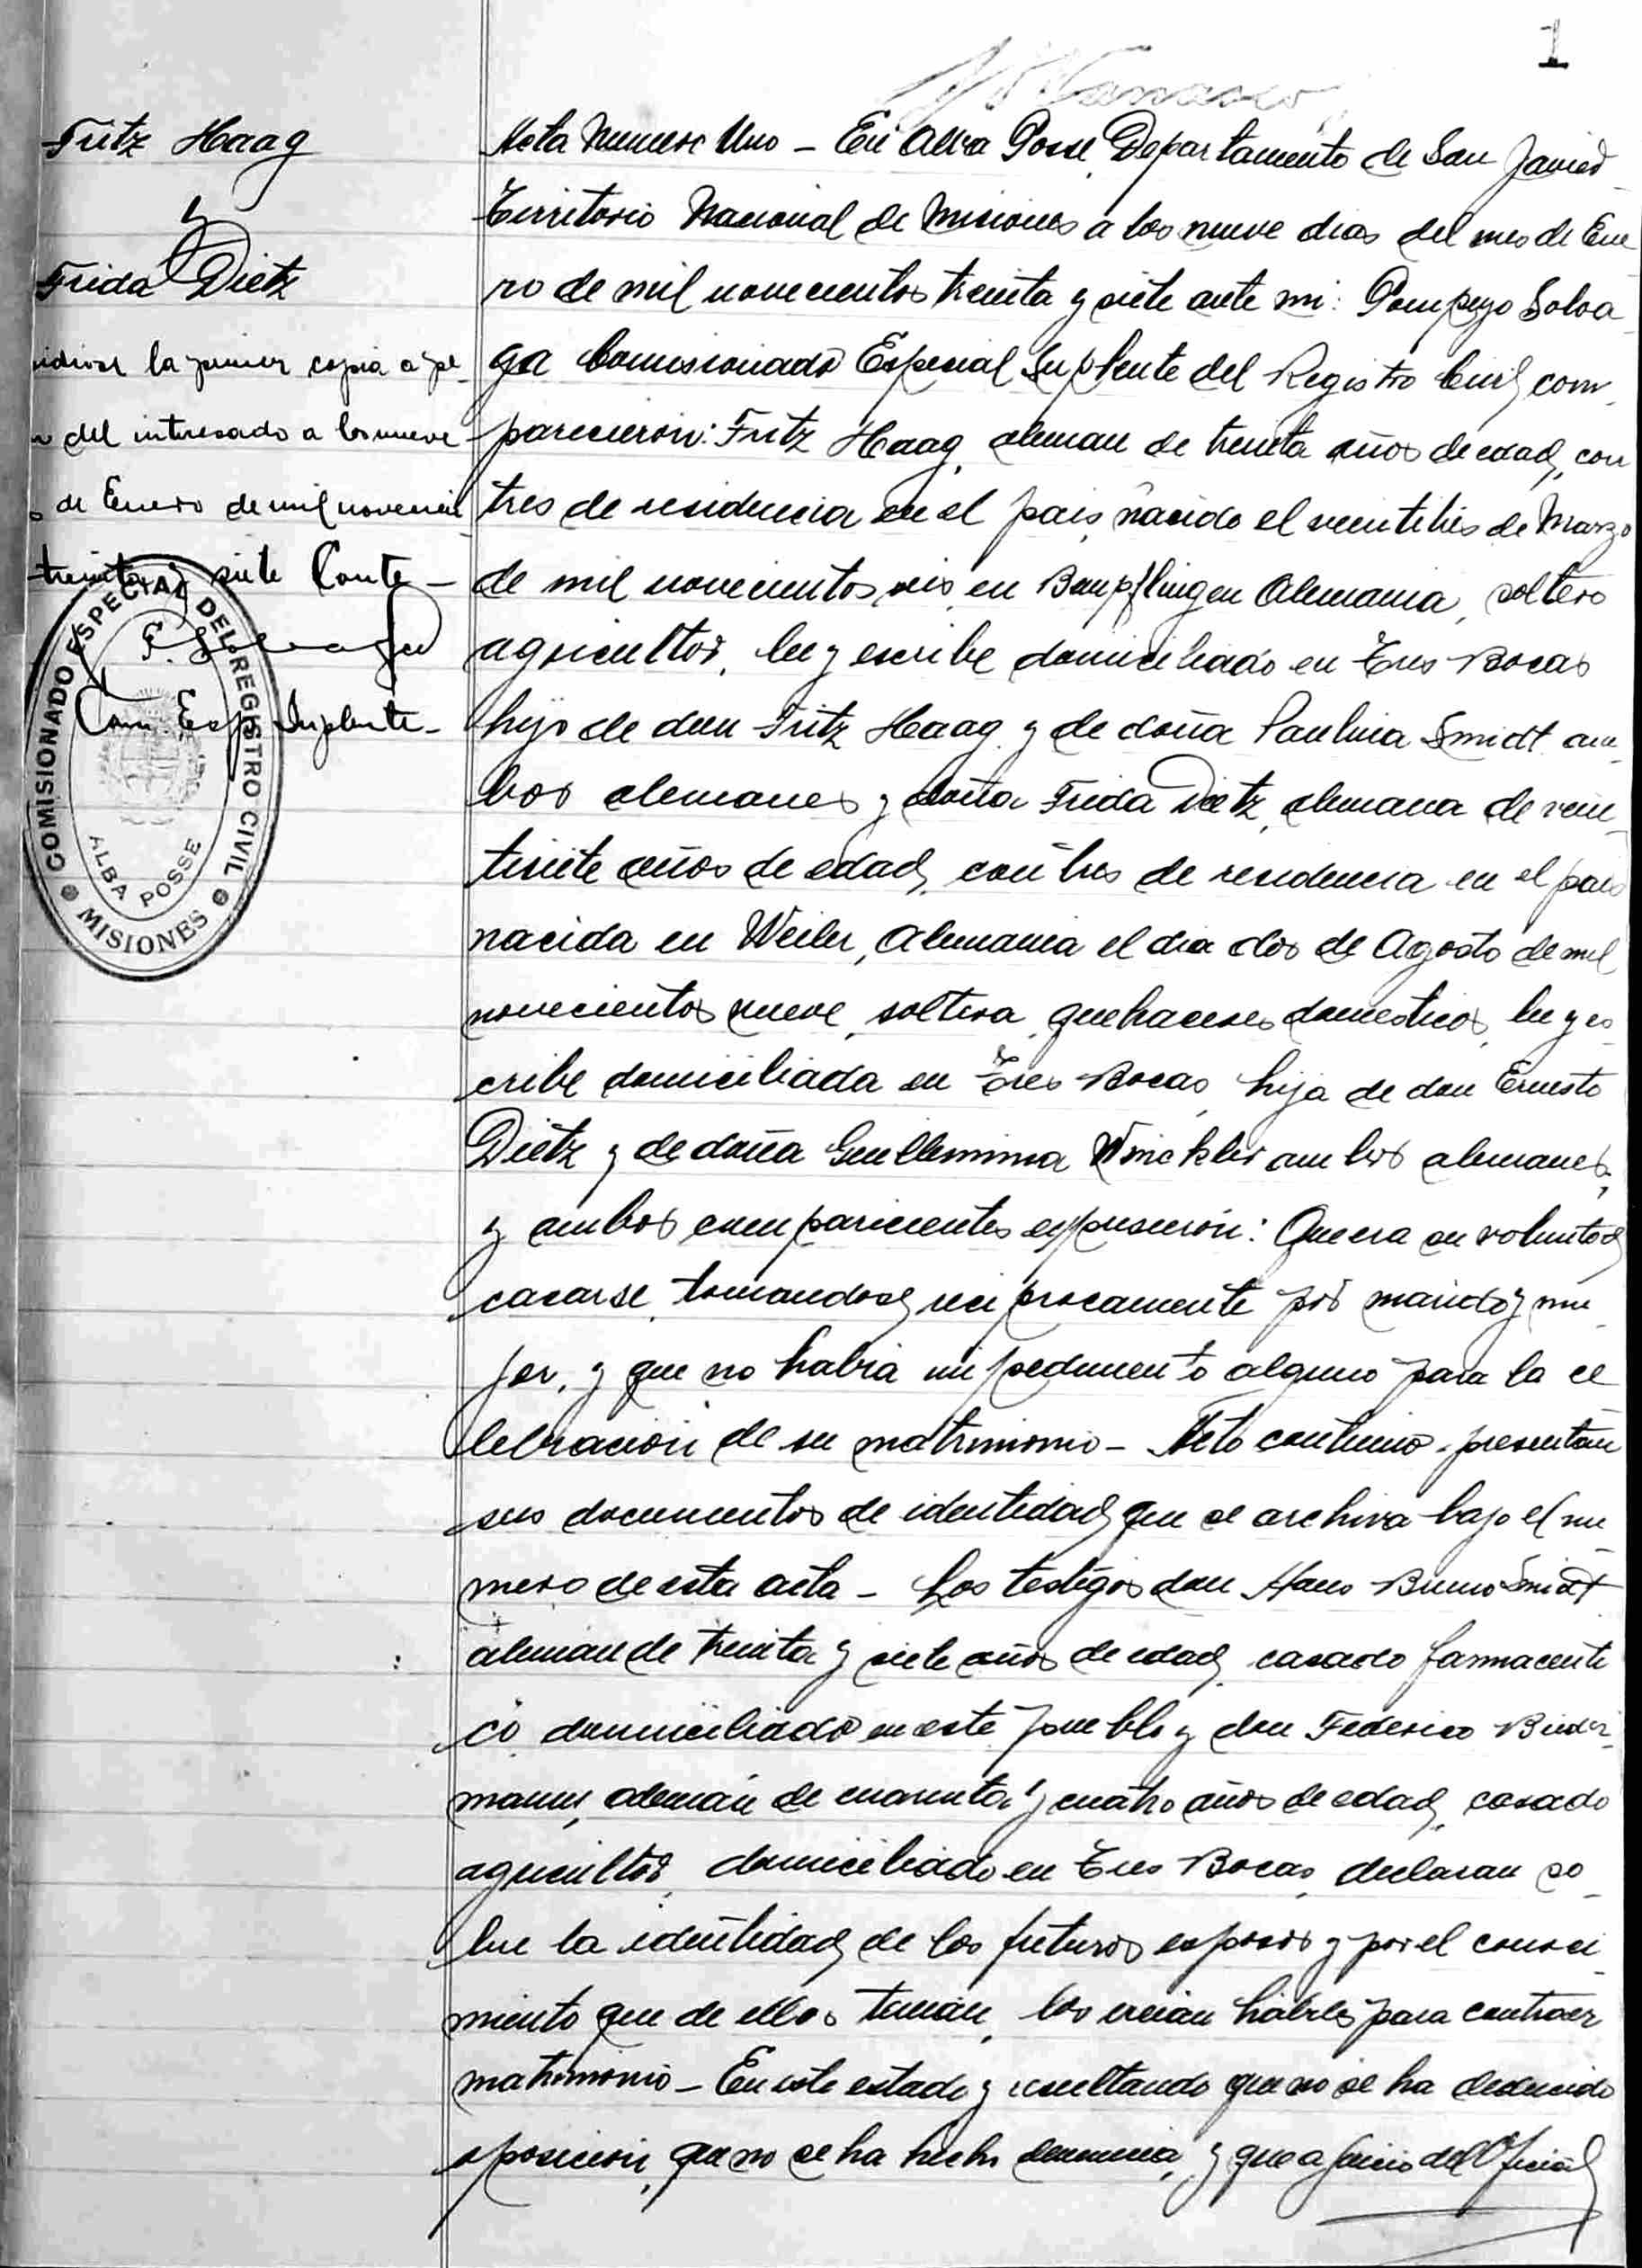 1
Fritz Haag
y
Frida Dietz
la primer copia a pe-
del interesado a los nueve
de Enero de mil novecien
treinta y siete Conte-
Com. Esp. Suplente-
COMISIONADO ESPECIAL DEL REGISTRO CIVIL
ALBA POSSE
MISIONES
Acta Numero Uno - En Alba Posse, Departamento de San Javier
Territorio Nacional de Misiones a los nueve dias del mes de Ene
ro de mil novecientos treinta y siete ante mi: Pompeyo Soloa
ga Comisionado Especial Suplente del Registro Civil com-
parecieron: Fritz Haag, aleman de treinta años de edad, con
tres de residencia en el pais, nacido el veintitres de Marzo
de mil novecientos seis en Bempflingen Alemania, soltero
agricultor, lee y escribe domiciliado en Tres Bocas
hijo de don Fritz Haag y de doña Paulina Smidt am-
bos alemanes y doña Frida Dietz, alemana de vein-
tisiete años de edad, con tres de residencia en el pais
nacida en Weiler, Alemania el dia dos de Agosto de mil
novecientos nueve, soltera, quehaceres domesticos, lee y es
cribe domiciliada en Tres Bocas, hija de don Ernesto
Dietz y de doña Guillermina Winckler ambos alemanes,
y ambos comparecientes expusieron: Que era su voluntad
casarse, tomandose reciprocamente por marido y mu-
jer, y que no habia impedimento alguno para la ce
lebracion de su matrimonio - Acto continuo presentan
sus documentos de identidad que se archiva bajo el nu-
mero de esta acta - Los testigos don Hans Bruno Smidt
aleman de treinta y siete años de edad, casado farmaceuti
co, domiciliado en este pueblo y don Federico Bieder-
mann, alemán de cuarenta y cuatro años de edad, casado
agricultor, domiciliado en Tres Bocas, declaran so-
bre la identidad de los futuros esposos y por el conoci-
miento que de ellos tenian, los creian habiles para contraer
matrimonio - En este estado y resultando que no se ha deducido
oposicion, que no se ha hecho denuncia, y que a juicio del Oficial